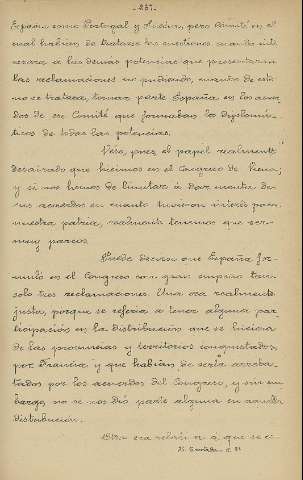 - 257.-
España como Portugal y Suecia, pero Comité en el
cual habían de tratarse las cuestiones cuanto inte
resase a las demas potencias que presentaran
las reclamaciones no pudiendo, cuando de esto
no se tratara, tomar parte España en los acuer
dos de ese Comité que formaban los diplomá-
ticos de todas las potencias.
Vese, pues el papel realmente
desairado que hicimos en el Congreso de Viena;
y si nos hemos de limitar á dar cuenta de
sus acuerdos en cuanto tuvieron interés para
nuestra patria, realmente tenemos que ser
muy parcos.
Puede decirse que España for-
muló en el Congreso con gran empeño tan
solo tres reclamaciones. Una era realmente
justa, porque se referia a tener alguna par
ticipación en la distribución que se hiciera
de las provincias y territorios conquistados
por Francia y que habían de serla arreba-
tados por los acuerdos del Congreso, y sin em
bargo, no se nos dió parte alguna en aquella
distribución.
Otra era relativa a que se